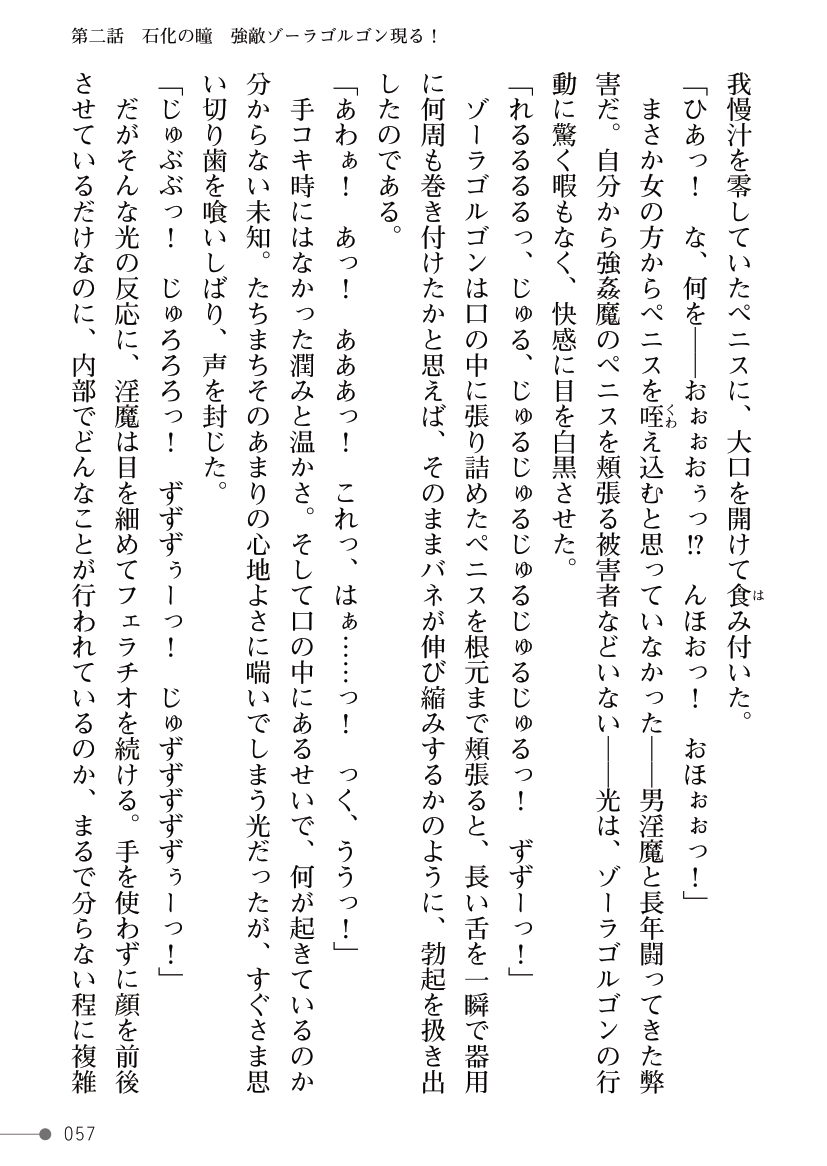 第二話　石化の瞳　強敵ゾーラゴルゴン現る！
我慢汁を零していたペニスに、大口を開けて食み付いた。
「ひあっ！　な、何を――おぉぉおぅっ⁉　んほおっ！　おほぉぉっ！」
まさか女の方からペニスを咥え込むと思っていなかった――男淫魔と長年闘ってきた弊
害だ。自分から強姦魔のペニスを頬張る被害者などいない――光は、ゾーラゴルゴンの行
動に驚く暇もなく、快感に目を白黒させた。
「れるるるるっ、じゅる、じゅるじゅるじゅるじゅるじゅるっ！　ずずーっ！」
ゾーラゴルゴンは口の中に張り詰めたペニスを根元まで頬張ると、長い舌を一瞬で器用
に何周も巻き付けたかと思えば、そのままバネが伸び縮みするかのように、勃起を扱き出
したのである。
「あわぁ！　あっ！　あああっ！　これっ、はぁ……っ！　っく、ううっ！」
手コキ時にはなかった潤みと温かさ。そして口の中にあるせいで、何が起きているのか
分からない未知。たちまちそのあまりの心地よさに喘いでしまう光だったが、すぐさま思
い切り歯を喰いしばり、声を封じた。
「じゅぶぶっ！　じゅろろろっ！　ずずずぅーっ！　じゅずずずずずぅーっ！」
だがそんな光の反応に、淫魔は目を細めてフェラチオを続ける。手を使わずに顔を前後
させているだけなのに、内部でどんなことが行われているのか、まるで分らない程に複雑
057